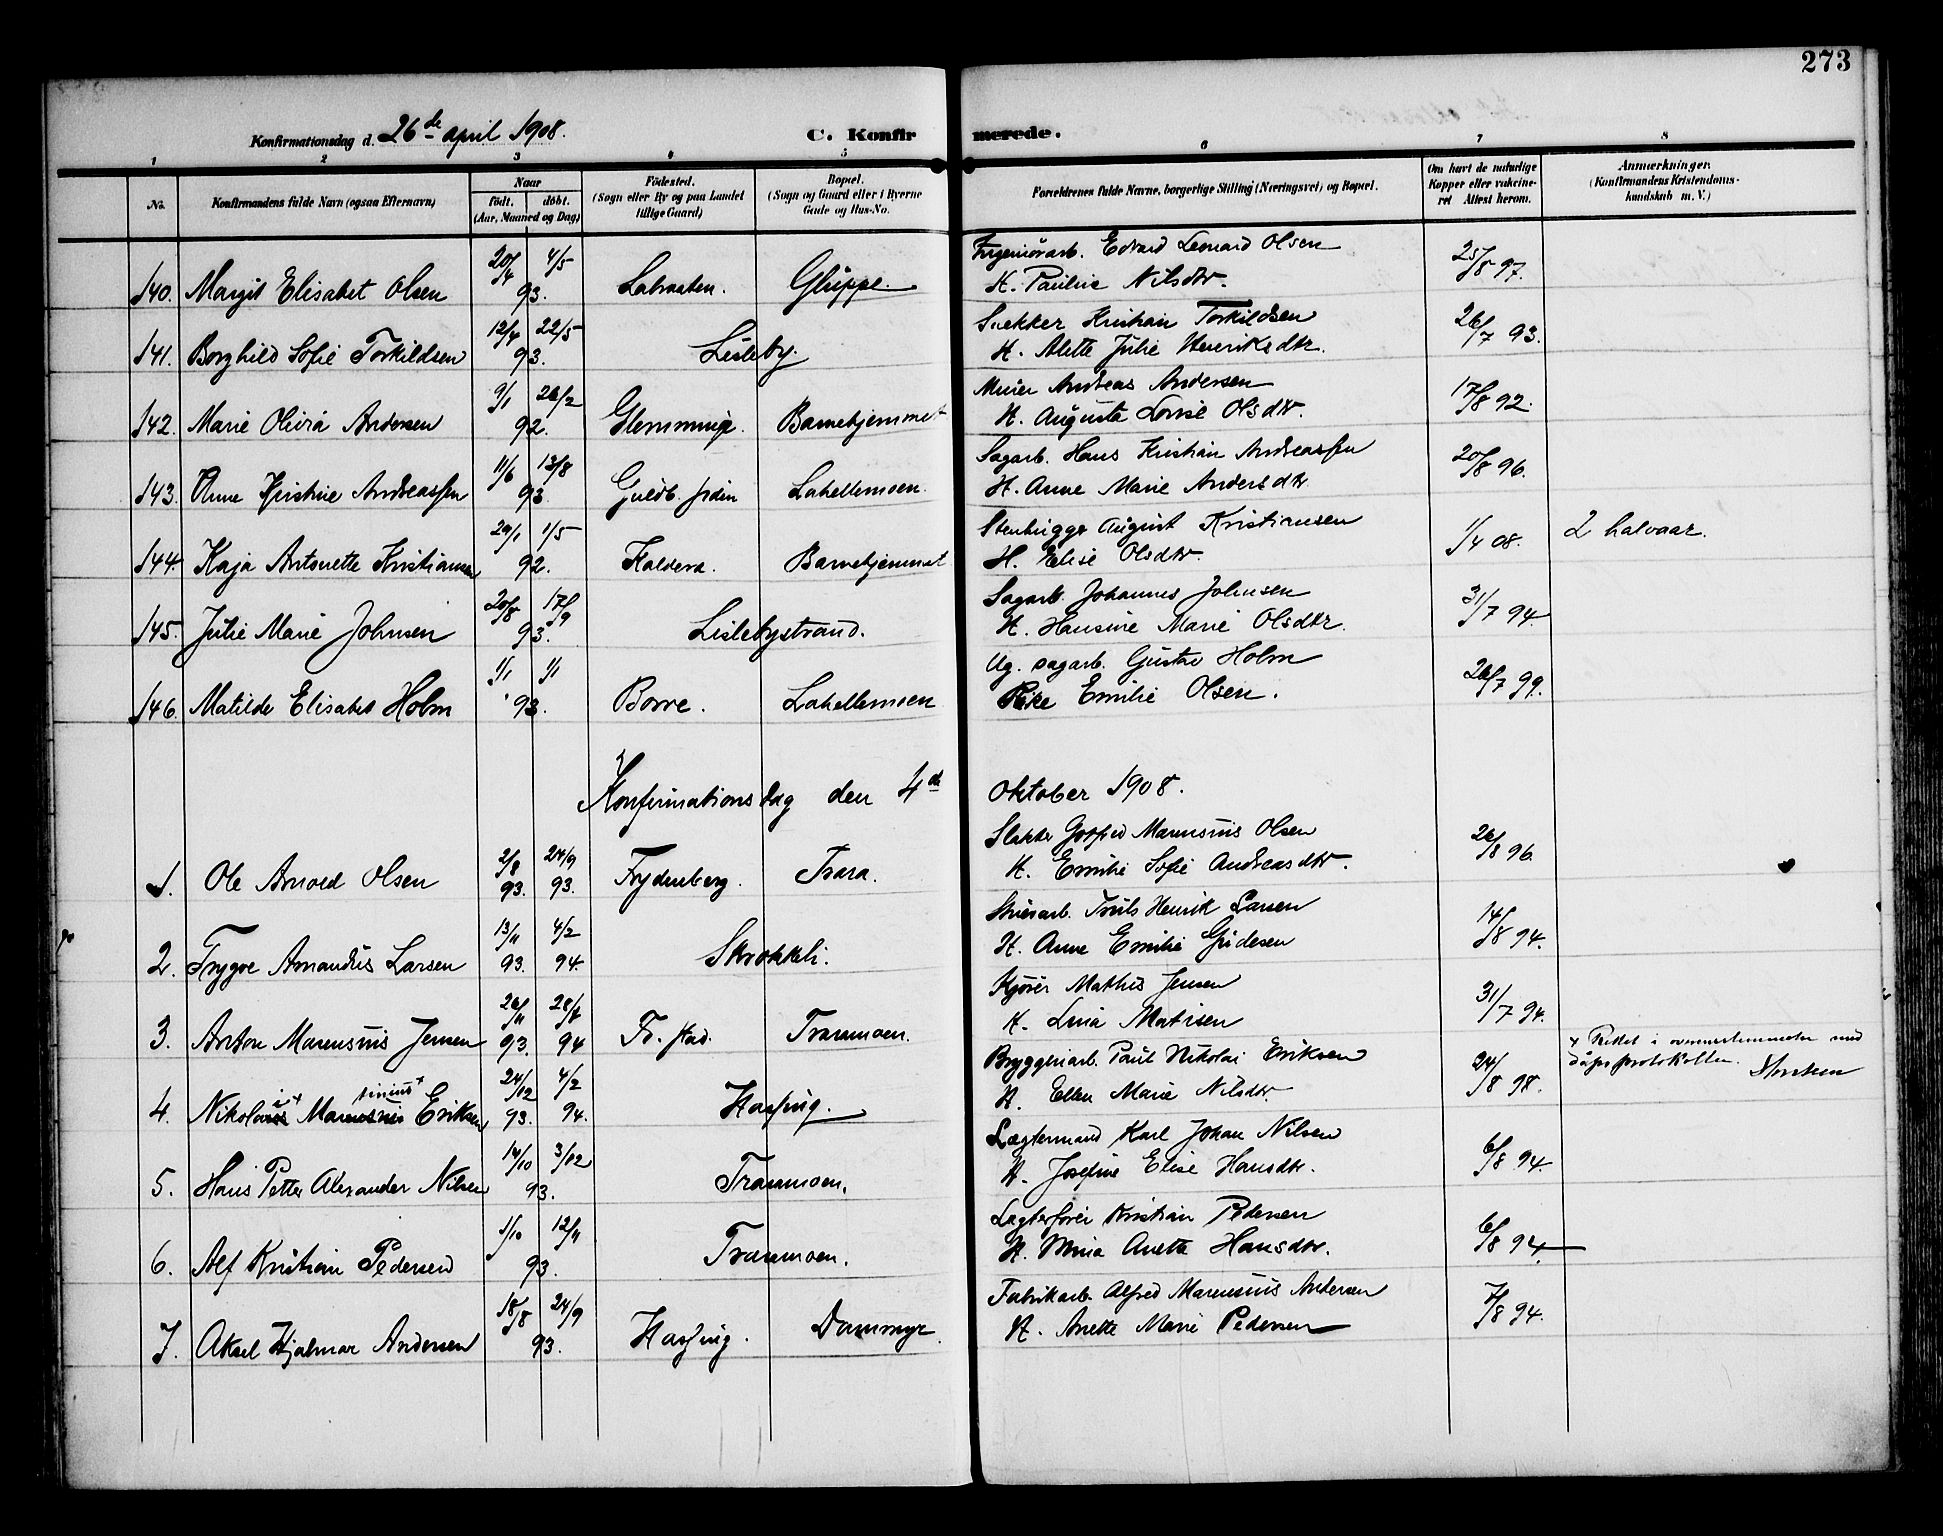 273
Konfirmationsdag d. 26de april 1908.
C. Konfirmerede.
1 2 3 4 5 6 7 8
No.
Konfirmandens fulde Navn (ogsaa Efternavn).
Naar
født. døbt.
(Aar, Maaned og Dag)
Fødested.
(Sogn eller By og paa Landet
tillige Gaard)
Bopæl.
(Sogn og Gaard eller i Byerne
Gade og Hus-No.
Forældrenes fulde Navne, borgerlige Stilling (Næringsvei) og Bopæl.
Om havt de naturlige
Kopper eller vakcine-
ret Attest herom.
Anmærkninger.
(Konfirmandens Kristendoms-
kundskab m. V.)
20/4 4/5 Ingeniørarb. Edvard Leonard Olsen 25/8 97.
140. Margit Elisabet Olsen 93. Labraaten. Gluppe. H. Pauline Nilsdtr.
12/4 22/5 Snekker Kristian Torkildsen 26/7 93.
141. Borghild Sofie Torkildsen 93. Lisleby. H. Alette Julie Henriksdtr.
9/1 26/2 Murer Andreas Andersen 17/8 92.
142. Marie Olivia Andersen 92. Glemminge. Barnehjemmet H. Augusta Lovise Olsdtr.
11/6 13/8 Sagarb. Hans Kristian Andreassen 20/8 96.
143. Anne Kristine Andreassen 93 Guldb. sjøen Lahellemoen. H. Anne Marie Andersdtr.
29/1 1/5 Stenhugger August Kristiansen 1/4 08. 2 halvaar.
144. Kaja Antonette Kristiansen 92. Barnehjemmet H. Elise Olsdtr.
20/8 17/9 Sagarb. Johannes Johnsen 31/7 94.
145. Julie Marie Johnsen 93. Lislebystrand. H. Hansine Marie Olsdtr.
1/1 1/1 Ug. sagarb. Gustav Holm 26/7 99.
146. Matilde Elisabet Holm 93. Borre. Lahellemoen Pike Emilie Olsen.
Konfirmationsdag den 4de Oktober 1908.
2/8 24/9 Slakter Gotfred Marensius Olsen 26/8 96.
1. Ole Arnold Olsen 93. 93. Frydenberg. Trara. H. Emilie Sofie Andreasdtr.
13/11 4/2 Truls Henrik Larsen 14/8 94.
2. Trygve Amandus Larsen 93. 94. Skrokkeli. H. Anne Emilie Gudesen
26/11 Kjører Mathis Jensen 31/7 94.
3. Anton Marensius Jensen 93. 94 Fr. stad. Traramoen. H. Lina Matisen
24/12 4/2 Bryggeriarb. Paul Nikolai Eriksen 24/8 98.
+ Rettet i overensstemmelse med
dåpsprotokollen.
sinius+
4. Nikolai Eriksen 93. 94. Hassing. H. Ellen Marie Nilsdtr.
14/10 3/12 Lægtermand Karl Johan Nilsen 6/8 94.
5. Hans Petter Alexander Nilsen 93. Traramoen. H. Josefine Elise Hansdtr.
1/10 12/11 Kristian Pedersen 6/8 94.
6. Alf Kristian Pedersen 93. Traramoen. H. Mina Anette Hansdtr.
18/8 24/9 Fabrikarb. Alfred Marensius Andersen 7/8 94.
7. Aksel Hjalmar Andersen 93. Hassing. Dammyr. H. Anette Marie Pedersen